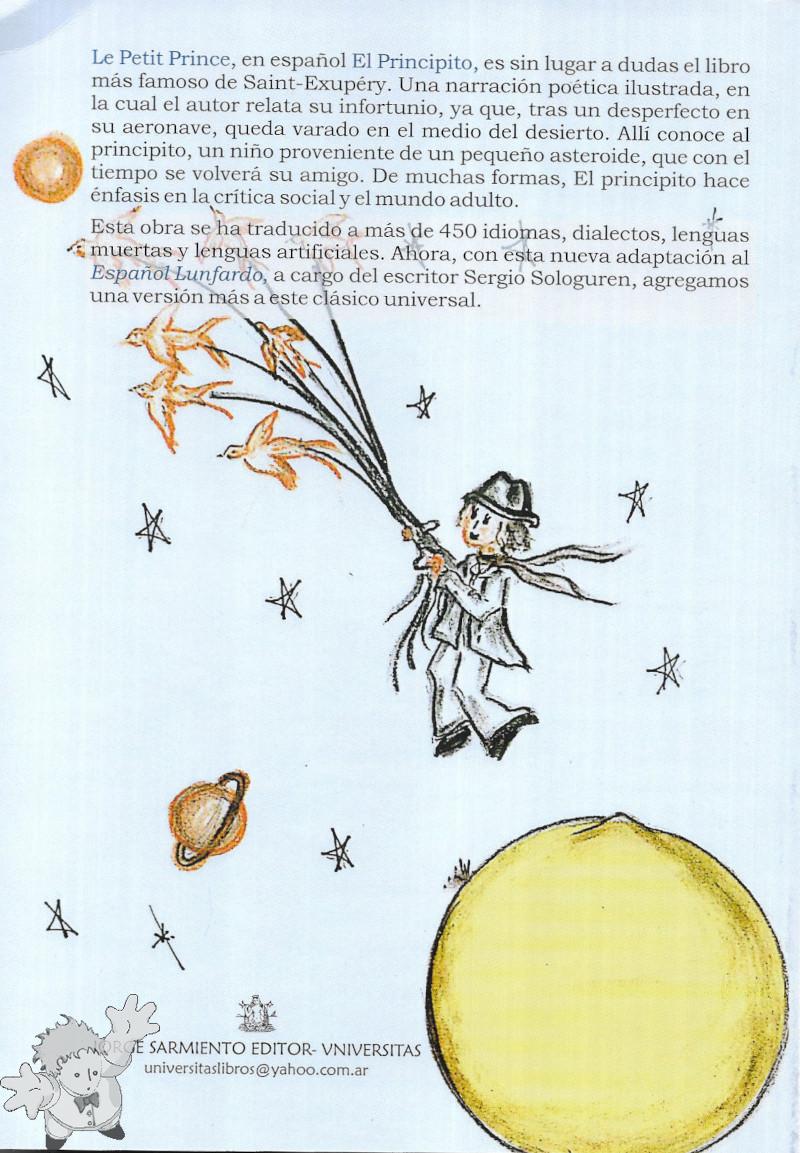 Le Petit Prince, en español El Principito, es sin lugar a dudas el libro
más famoso de Saint-Exupéry. Una narración poética ilustrada, en
la cual el autor relata su infortunio, ya que, tras un desperfecto en
su aeronave, queda varado en el medio del desierto. Allí conoce al
principito, un niño proveniente de un pequeño asteroide, que con el
tiempo se volverá su amigo. De muchas formas, El principito hace
énfasis en la crítica social y el mundo adulto.
Esta obra se ha traducido a más de 450 idiomas, dialectos, lenguas
muertas y lenguas artificiales. Ahora, con esta nueva adaptación al
Español Lunfardo, a cargo del escritor Sergio Sologuren, agregamos
una versión más a este clásico universal.
JORGE SARMIENTO EDITOR- VNIVERSITAS
universitaslibros@yahoo.com.ar